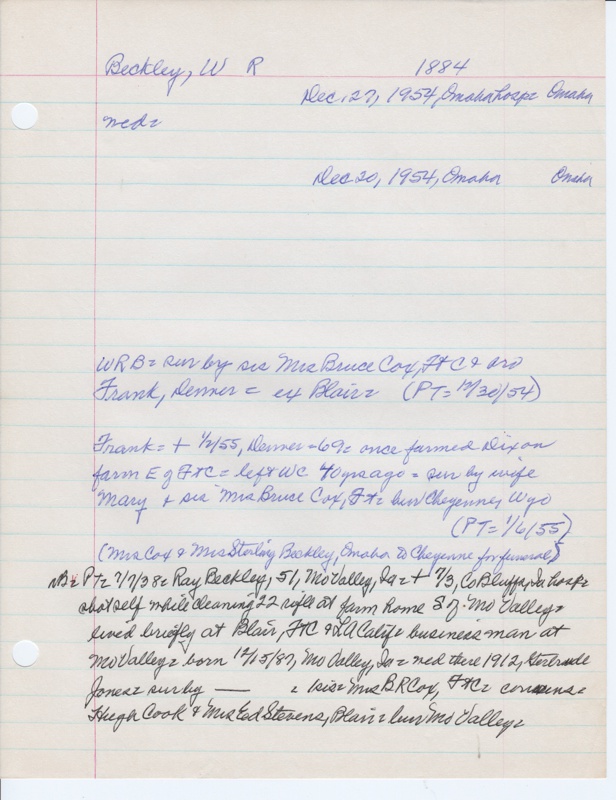 Beckley, W R 1884
Dec 27, 1954, Omaha hosp= Omaha
wed=
Dec 20, 1954, Omaha Omaha
WRB= sur by sis Mrs Bruce Cox, FtC & bro
Frank, Denver = ex Blair= (PT= 12/30/54)
Frank= + 1/2/55, Denver -69= once farmed Dixon
farm E of FtC= left WC 40 yrs ago = sur by wife
Mary & sis Mrs Bruce Cox, Ft= bur Cheyenne, Wyo
(PT= 1/6/55)
(Mrs Cox & Mrs Sterling Beckley, Omaha to Cheyenne for funeral)
NB= PT= 7/7/38= Ray Beckley, 51, Mo Valley, Ia= + 7/3, Co Bluffs, Ia hosp=
shot self while cleaning 22 rifle at farm home S of Mo Valley=
lived briefly at Blair, FtC & LA Calif= business man at
Mo Valley= born 12/15/87, Mo Valley, Ia= wed there 1912, Gertrude
Jones= sur by — = 1 sis= Mrs B R Cox, FtC= cousins=
Hugh Cook & Mrs Ed Stevens, Blair= bur Mo Valley=